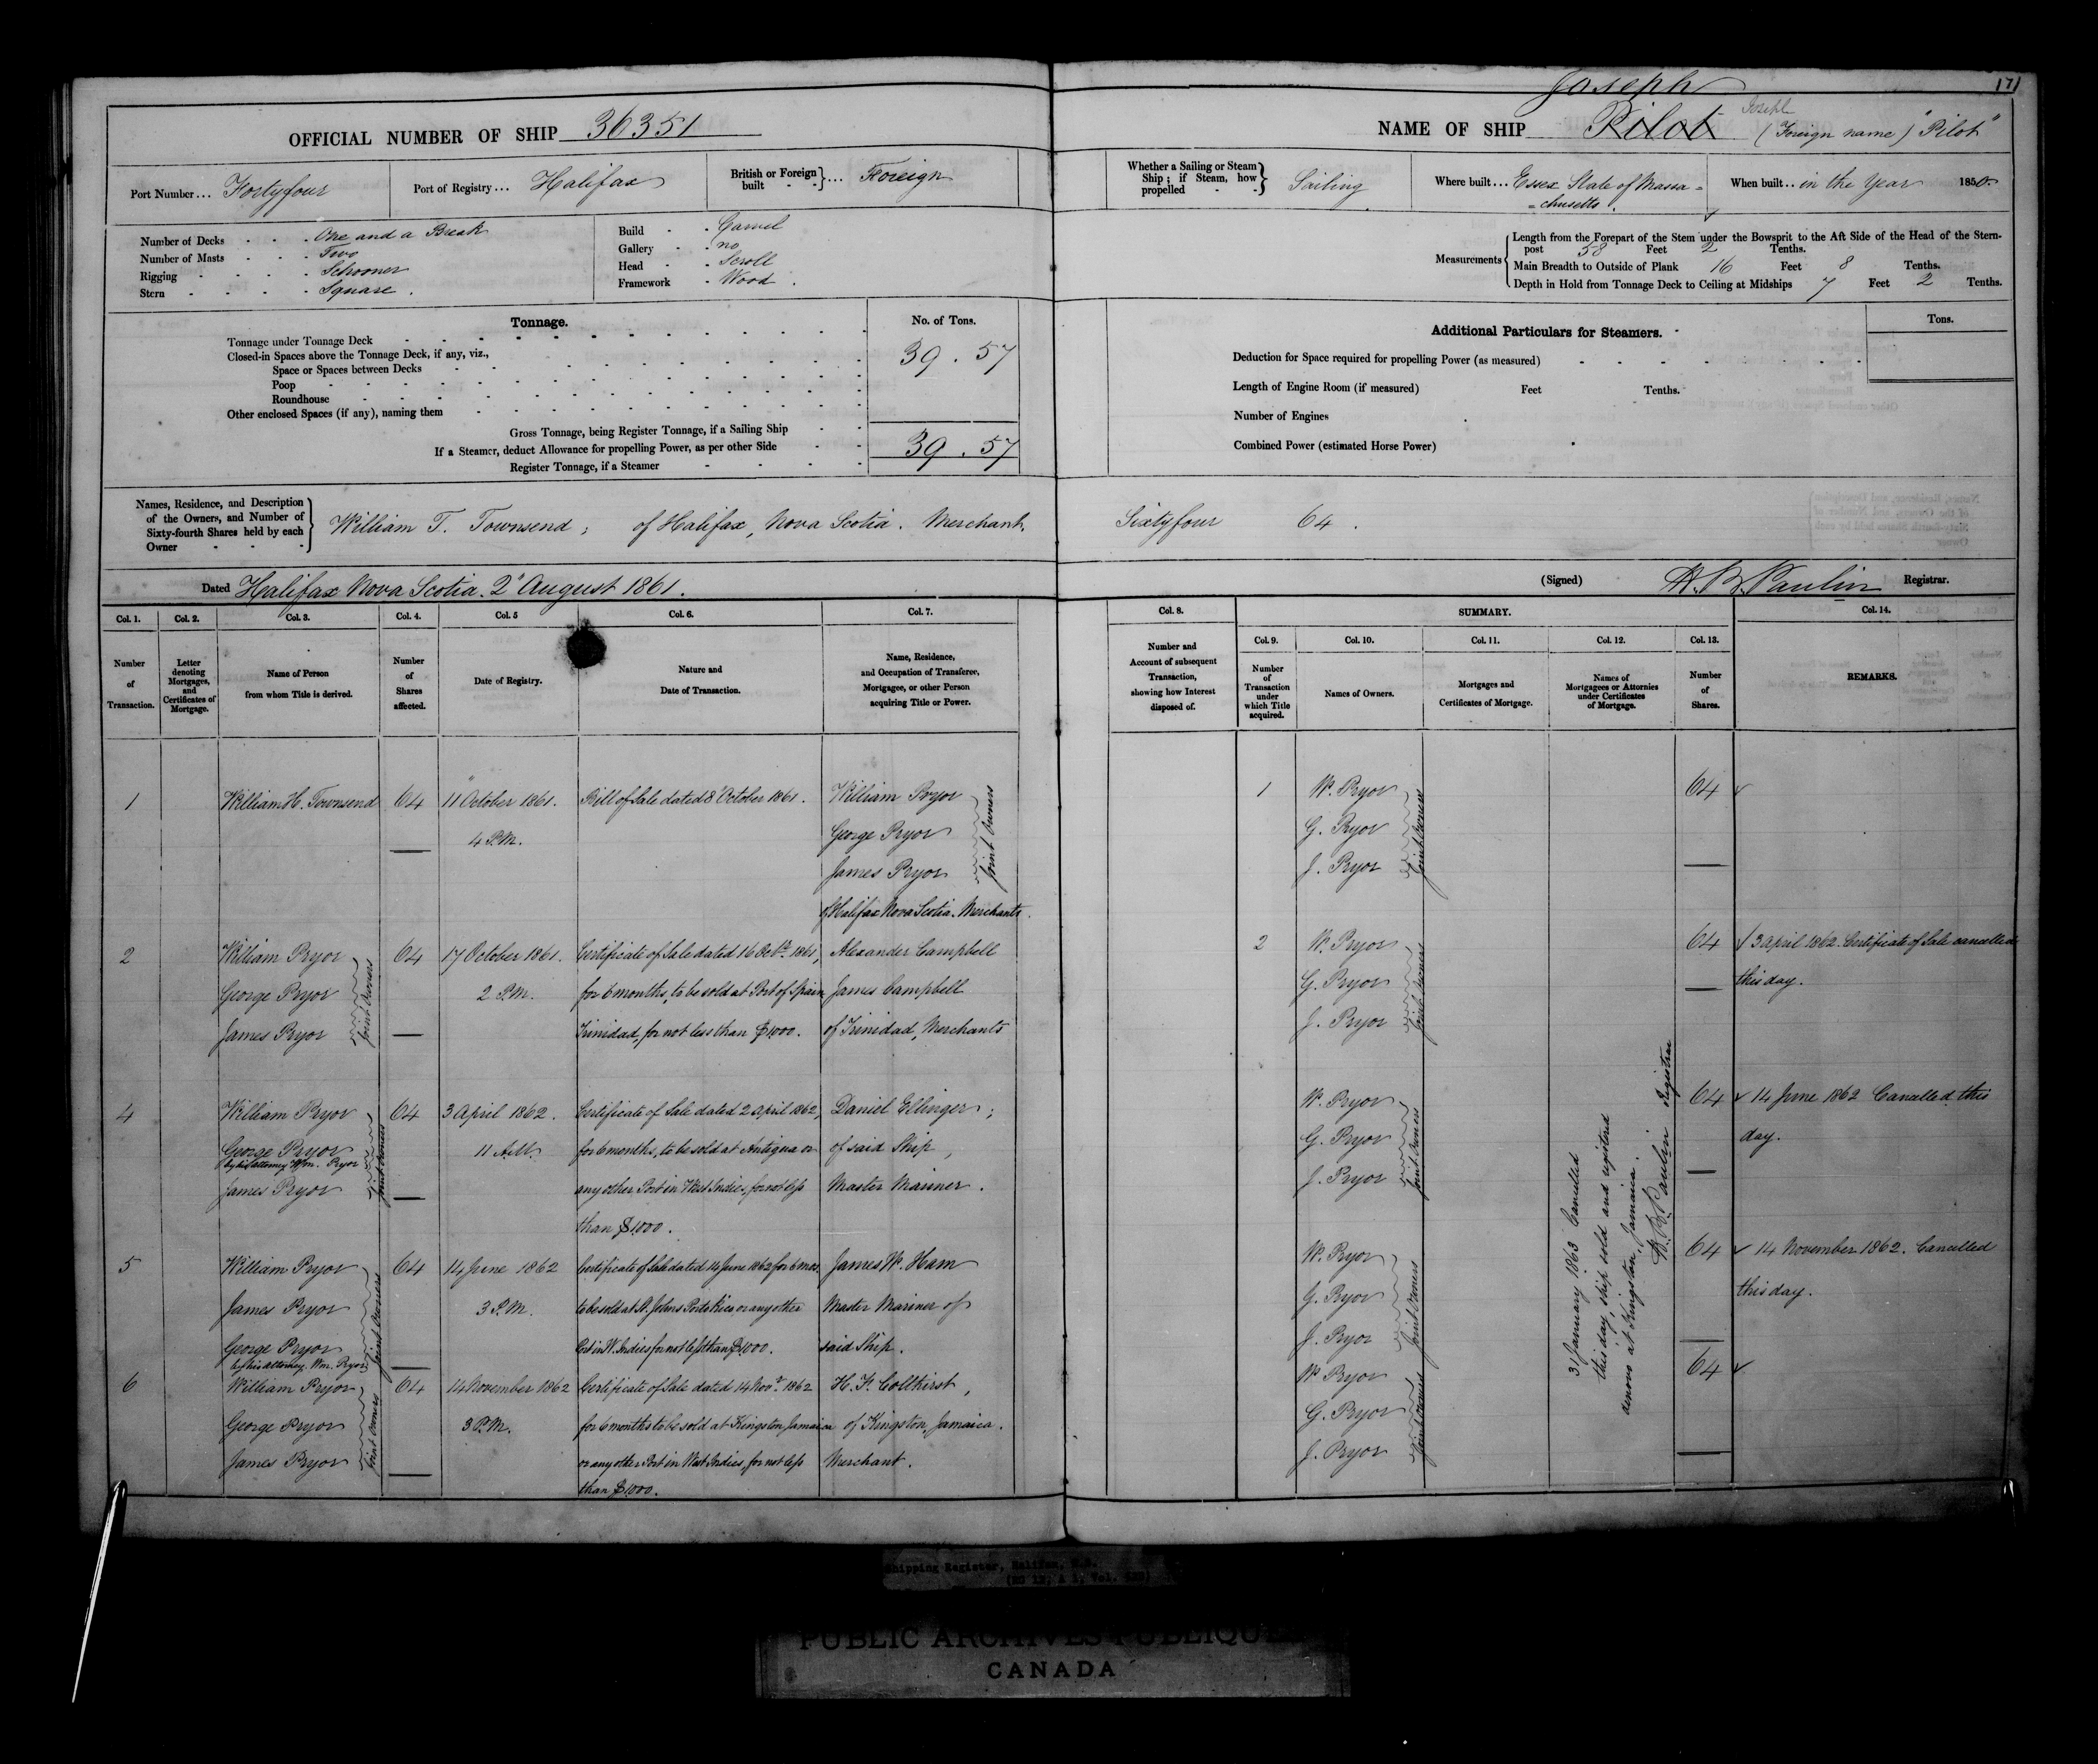 171
OFFICIAL NUMBER OF SHIP 36351
Port Number... Fortyfour
Port of Registry... Halifax
British or Foreign built - - }... Foreign
Number of Decks - - - One and a Break
Number of Masts - - - Two
Rigging - - - - Schooner
Stern - - - - Square.
Build - - Carvel
Gallery - - no
Head - - Scroll
Framework - Wood.
Tonnage.
No. of Tons.
Tonnage under Tonnage Deck
Closed-in Spaces above the Tonnage Deck, if any, viz.,
39.57
Space or Spaces between Decks
Poop
Roundhouse
Other enclosed Spaces (if any), naming them
Gross Tonnage, being Register Tonnage, if a Sailing Ship
If a Steamer, deduct Allowance for propelling Power, as per other Side
39.57
Register Tonnage, if a Steamer
Names, Residence, and Description
of the Owners, and Number of
Sixty-fourth Shares held by each
Owner
William T. Townsend; of Halifax, Nova Scotia. Merchant.
Dated Halifax Nova Scotia. 2 August 1861.
Joseph
NAME OF SHIP Pilot Joseph (Foreign name) "Pilot"
Whether a Sailing or Steam Ship; if Steam, how propelled - - } Sailing
Where built... Essex State of Massa=
=chusetts.
When built.. in the Year 1850
Measurements
Length from the Forepart of the Stem under the Bowsprit to the Aft Side of the Head of the Stern-
post 58 Feet 2 Tenths.
Main Breadth to Outside of Plank 16 Feet 8 Tenths.
Depth in Hold from Tonnage Deck to Ceiling at Midships 7 Feet 2 Tenths.
Additional Particulars for Steamers.
Tons.
Deduction for Space required for propelling Power (as measured)
Length of Engine Room (if measured) Feet Tenths.
Number of Engines
Combined Power (estimated Horse Power)
Sixtyfour 64.
(Signed) H. B. Paulin Registrar.
Col. 1.
Number of Transaction.
Col. 2.
Letter denoting Mortgages, and Certificates of Mortgage.
Col. 3.
Name of Person
from whom Title is derived.
Col. 4.
Number of Shares affected.
Col. 5
Date of Registry.
Col. 6.
Nature and
Date of Transaction.
Col. 7.
Name, Residence,
and Occupation of Transferee,
Mortgagee, or other Person
acquiring Title or Power.
Col. 8.
Number and
Account of subsequent
Transaction,
showing how Interest
disposed of.
SUMMARY.
Col. 9.
Number of Transaction under which Title acquired.
Col. 10.
Names of Owners.
Col. 11.
Mortgages and
Certificates of Mortgage.
Col. 12.
Names of
Mortgagees or Attornies
under Certificates
of Mortgage.
Col. 13.
Number of Shares.
Col. 14.
REMARKS.
1 William H. Townsend 64 11" October 1861. Bill of Sale dated 8 October 1861. William Pryor
4 P.M. George Pryor
James Pryor
Joint Owners
of Halifax Nova Scotia. Merchants.
1 W. Pryor 64
G. Pryor
J. Pryor
Joint Owners
2 William Pryor 64 17 October 1861. Certificate of Sale dated 16 Octr. 1861, Alexander Campbell
George Pryor 2 P.M. for 6 months, to be sold at Port of Spain James Campbell
James Pryor Trinidad, for not less than $1000. of Trinidad, Merchants
Joint Owners
2 W. Pryor 64 3 April 1862. Certificate of Sale cancelled
G. Pryor this day.
J. Pryor
Joint Owners
4 William Pryor 64 3 April 1862. Certificate of Sale dated 2 April 1862, Daniel Ellinger;
George Pryor 11 A.M. for 6 months, to be sold at Antigua or of said Ship,
by his attorney Wm. Pryor
James Pryor any other Port in West Indies, for not less Master Mariner.
Joint Owners
than $1000.
W. Pryor 64 14 June 1862 Cancelled this
G. Pryor day.
J. Pryor
Joint Owners
5 William Pryor 64 14 June 1862 Certificate of Sale dated 14 June 1862 for 6 mos. James W. Ham
James Pryor 3 P.M. to be sold at St. Johns Porto Rico or any other Master Mariner of
George Pryor Port in W. Indies for not less than $1000. said Ship.
by his attorney, Wm. Pryor
Joint Owners
W. Pryor 64 14 November 1862. Cancelled
G. Pryor this day.
J. Pryor
Joint Owners
6 William Pryor 64 14 November 1862 Certificate of Sale dated 14 Novr. 1862 H. F. Collhirst,
George Pryor 3 P.M. for 6 months to be sold at Kingston Jamaica of Kingston, Jamaica.
James Pryor or any other Port in West Indies, for not less Merchant.
Joint Owners
than $1000.
W. Pryor 64
G. Pryor
J. Pryor
Joint Owners
31 January 1863 Cancelled
this day, ship sold and registered
anew at Kingston, Jamaica.
H. B. Paulin Registrar
Shipping Register, Halifax, N.S.
PUBLIC ARCHIVES PUBLIQUES
CANADA